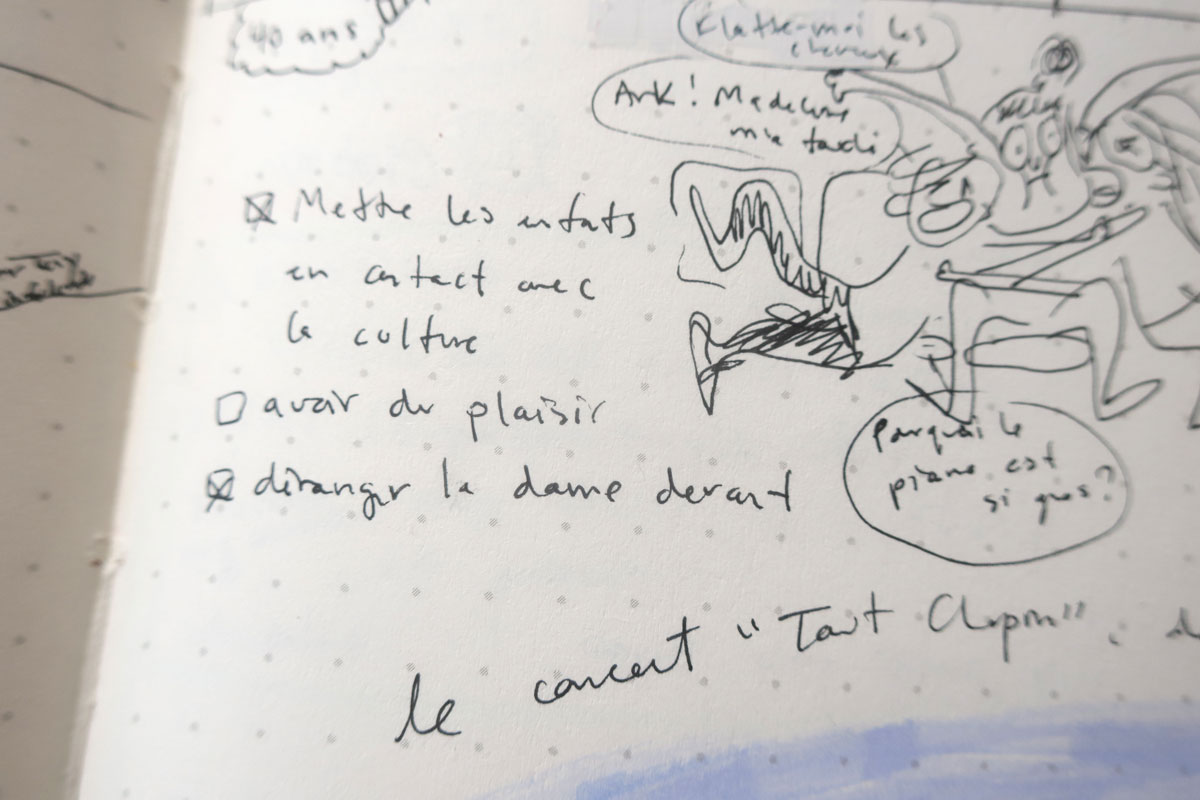 40 ans
Flatte-moi les
cheveux
Ark! Madeleine
m'a
☒ Mettre les enfats
en contact avec
la culture
☐ avoir du plaisir
☒ déranger la dame devant
Pourquoi le
piano est
si gros?
le concert "Tout Chopin"